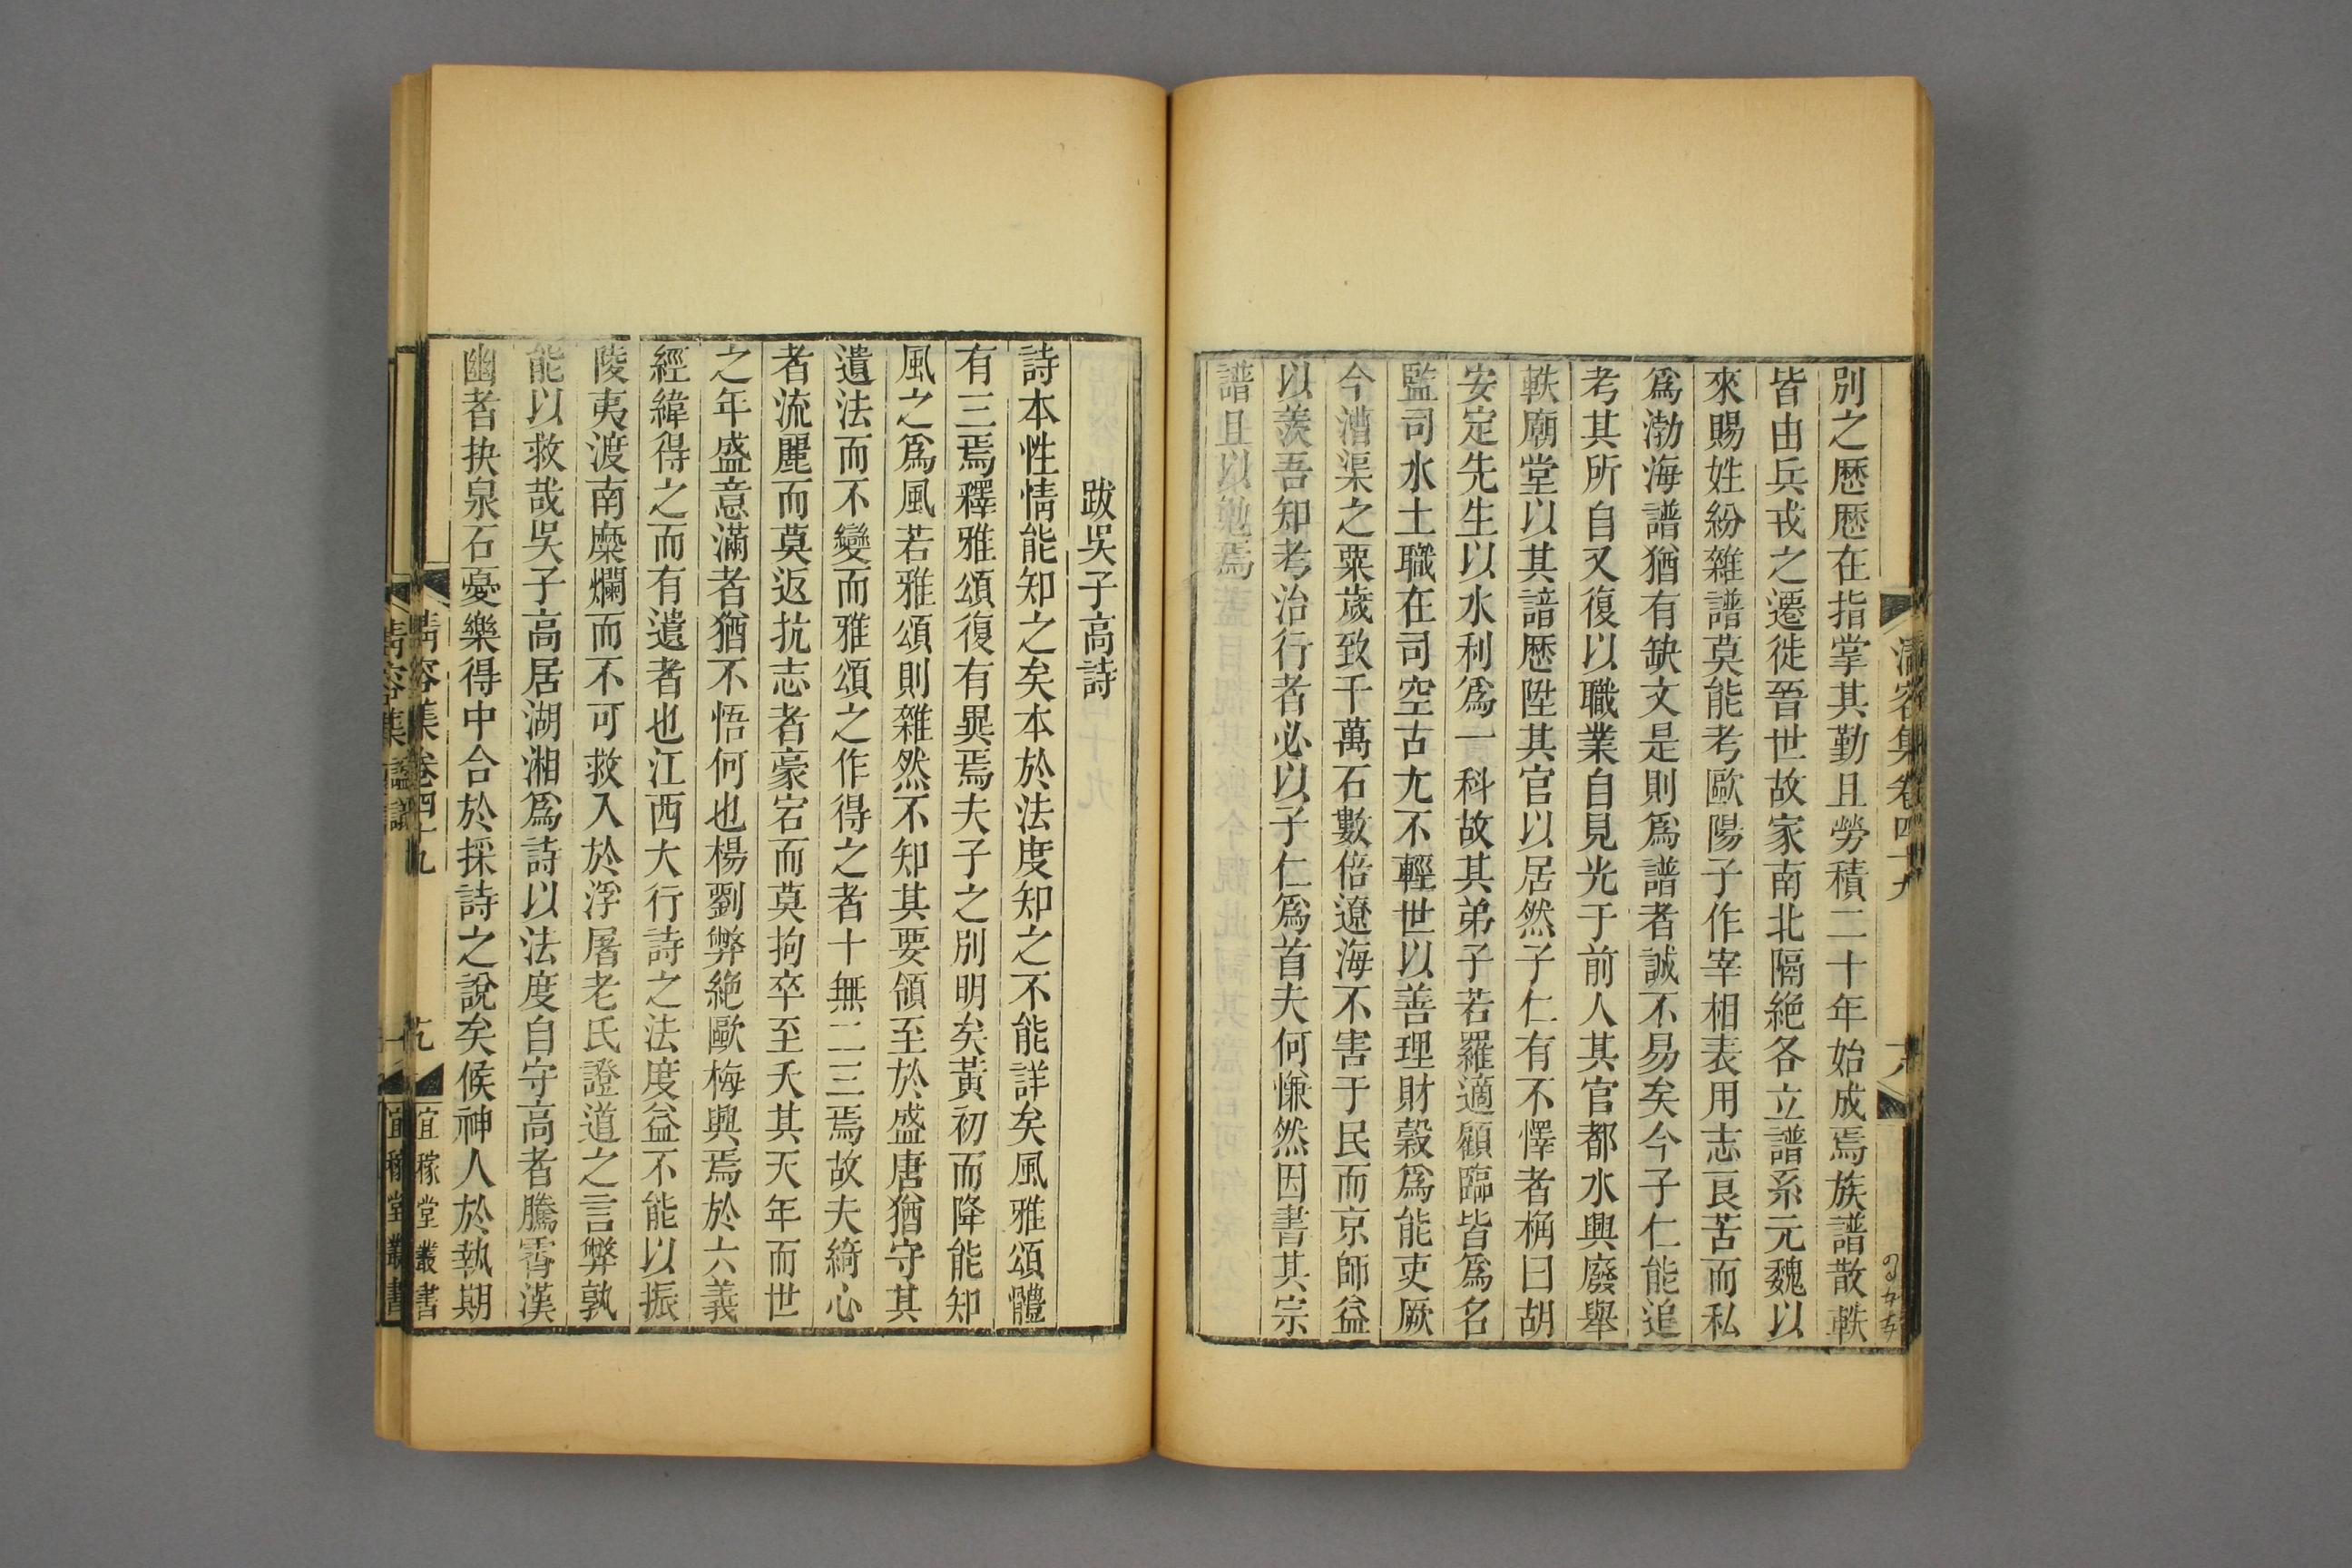 別之歷歷在指掌其勤且勞積二十年始成焉族譜散軼
皆由兵戎之遷徙晉世故家南北隔絶各立譜系元魏以
來賜姓紛雜譜莫能考歐陽子作宰相表用志良苦而私
爲渤海譜猶有缺文是則爲譜者誠不易矣今子仁能追
考其所自又復以職業自見光于前人其官都水興廢舉
軼廟堂以其諳歷陞其官以居然子仁有不懌者稱曰胡
安定先生以水利爲一科故其弟子若羅適顧臨皆爲名
監司水土職在司空古尢不輕世以善理財榖爲能吏厥
今漕渠之粟歲致千萬石數倍遼海不害于民而京師益
以羨吾知考治行者必以子仁爲首夫何慊然因書其宗
譜且以勉焉
跋吳子高詩
詩本性情能知之矣本於法度知之不能詳矣風雅頌體
有三焉釋雅頌復有異焉夫子之別明矣黃初而降能知
風之爲風若雅頌則雜然不知其要領至於盛唐猶守其
遺法而不變而雅頌之作得之者十無二三焉故夫綺心
者流麗而莫返抗志者豪宕而莫拘卒至夭其天年而世
之年盛意滿者猶不悟何也楊劉弊絶歐梅興焉於六義
經緯得之而有遺者也江西大行詩之法度益不能以振
陵夷渡南糜爛而不可救入於浮屠老氏證道之言弊孰
能以救哉吳子高居湖湘爲詩以法度自守高者騰霄漢
幽者抉泉石憂樂得中合於採詩之說矣候神人於執期
清容集卷四十九
宜稼堂叢書